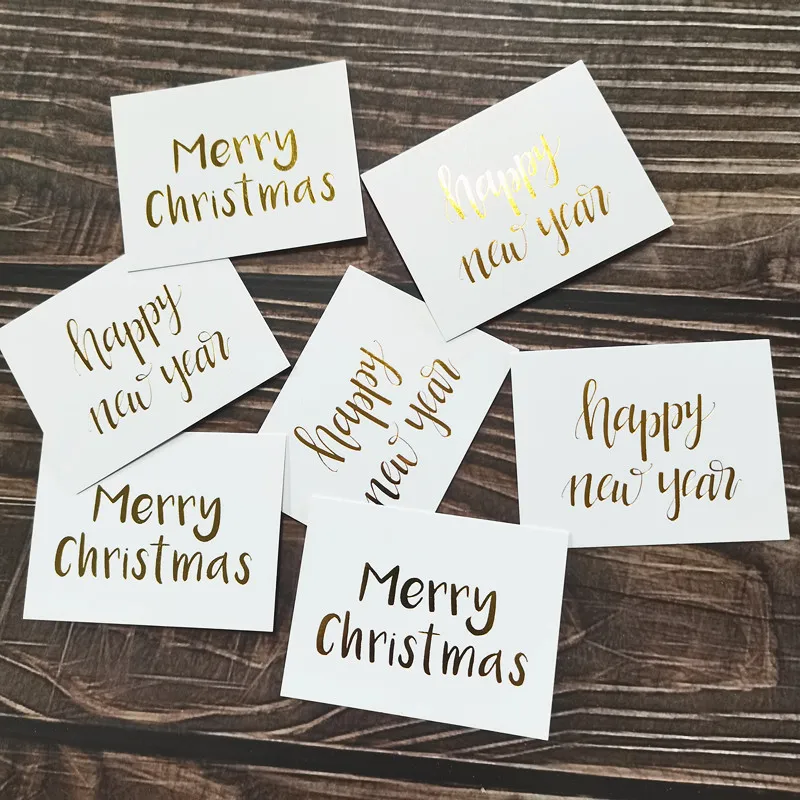 Merry
Christmas
happy
new year
happy
new year
happy
new year
happy
new year
Merry
Christmas
Merry
Christmas